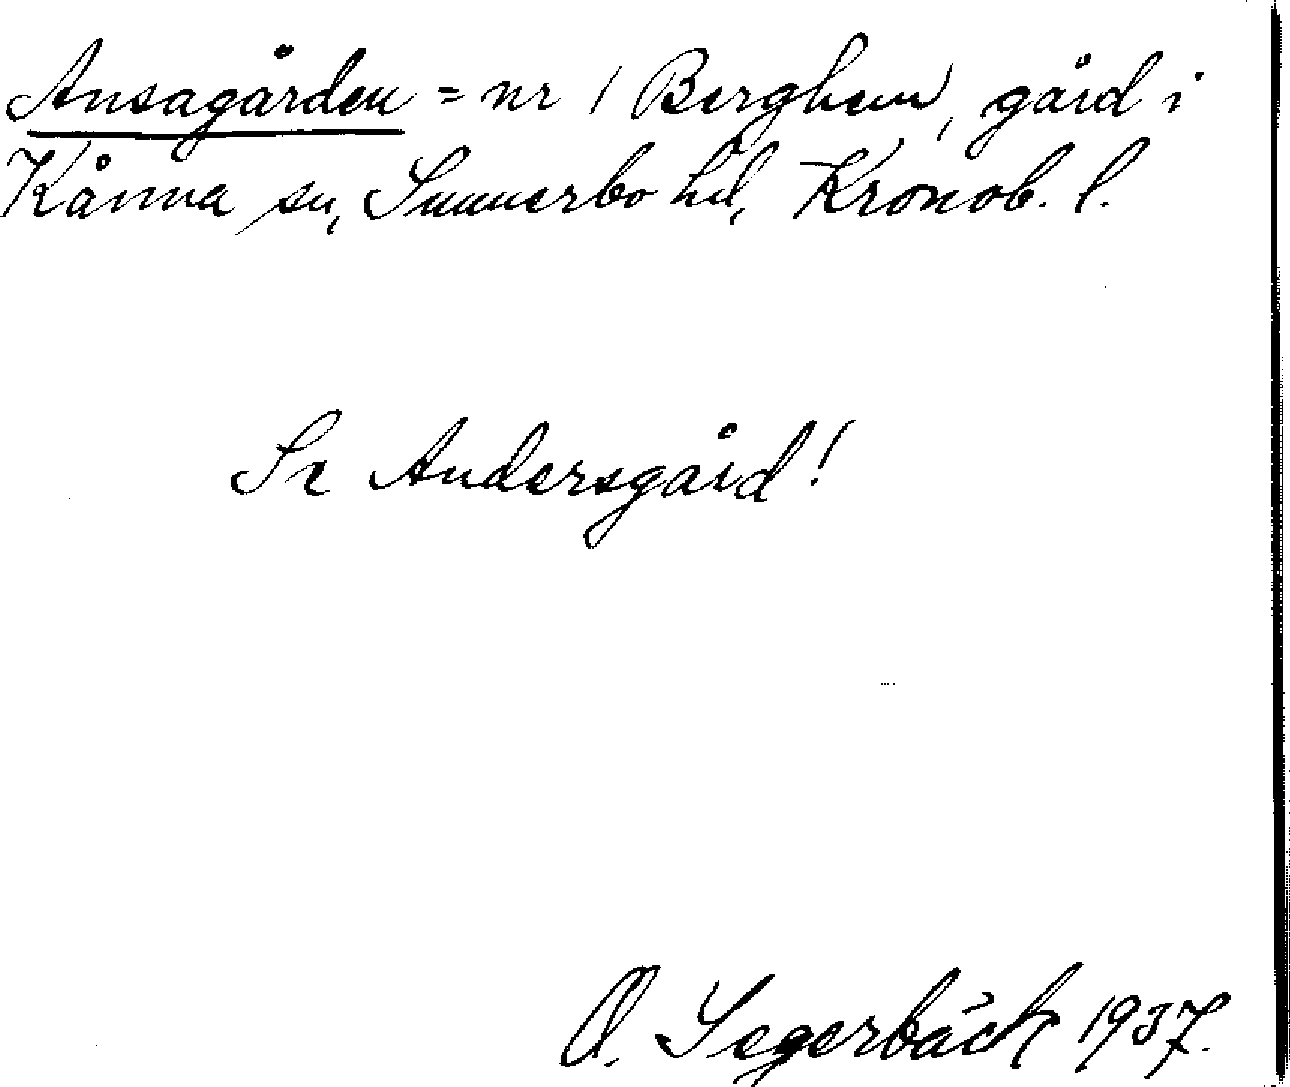 Ansagården = nr 1 Berghem, gård i
Kånna sn, Sunnerbo hd, Kronob. l.
Se Andersgård!
O. Segerbäck 1937.